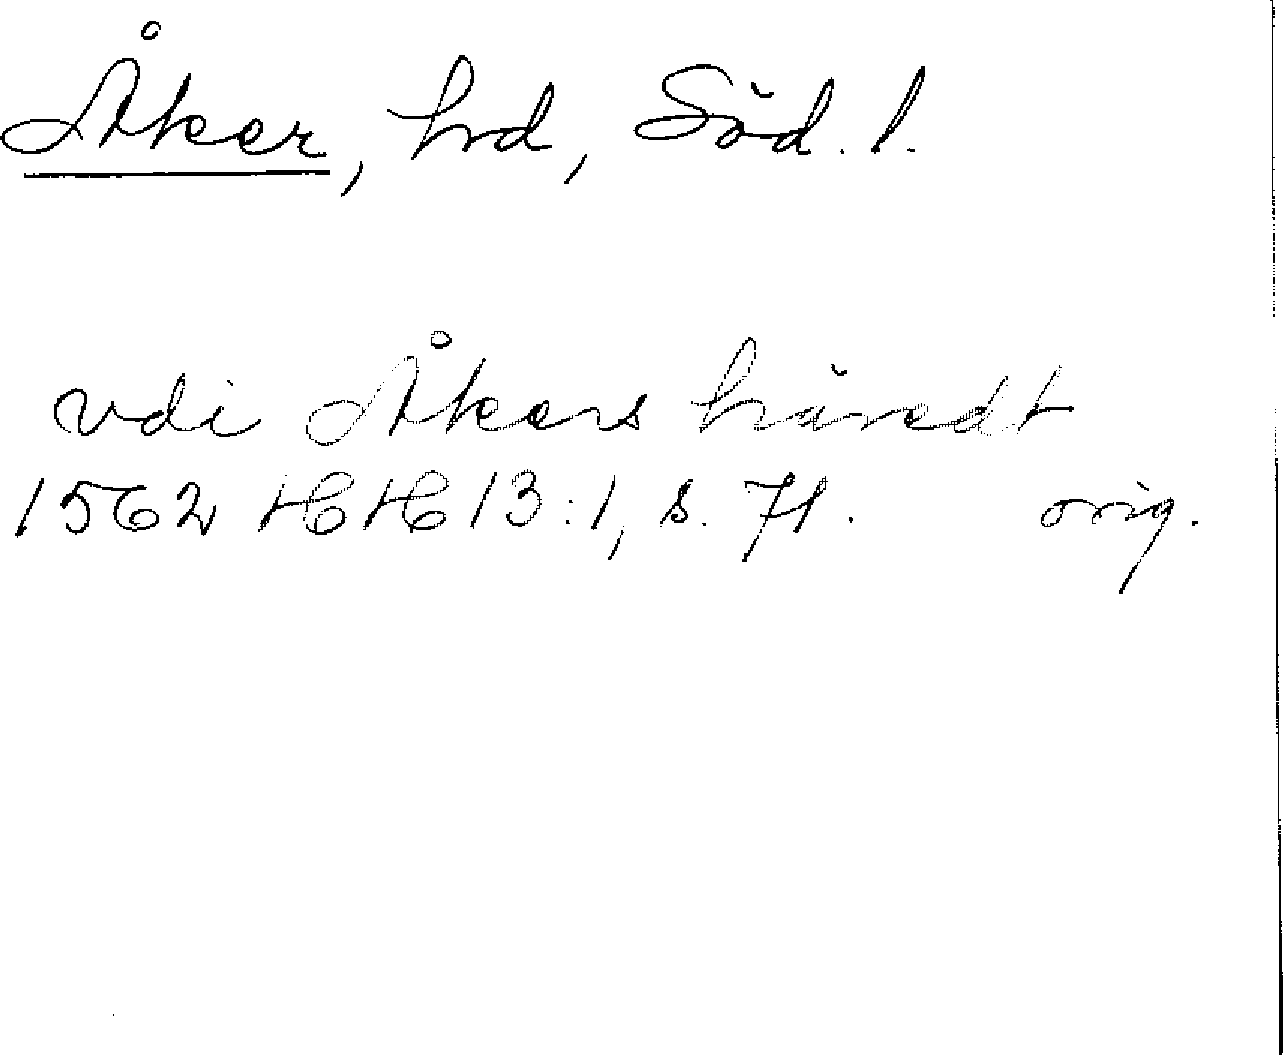 Åker, hd, Söd. l.
vdi Åkers häredt
1562 HH 13:1, s. 71. orig.